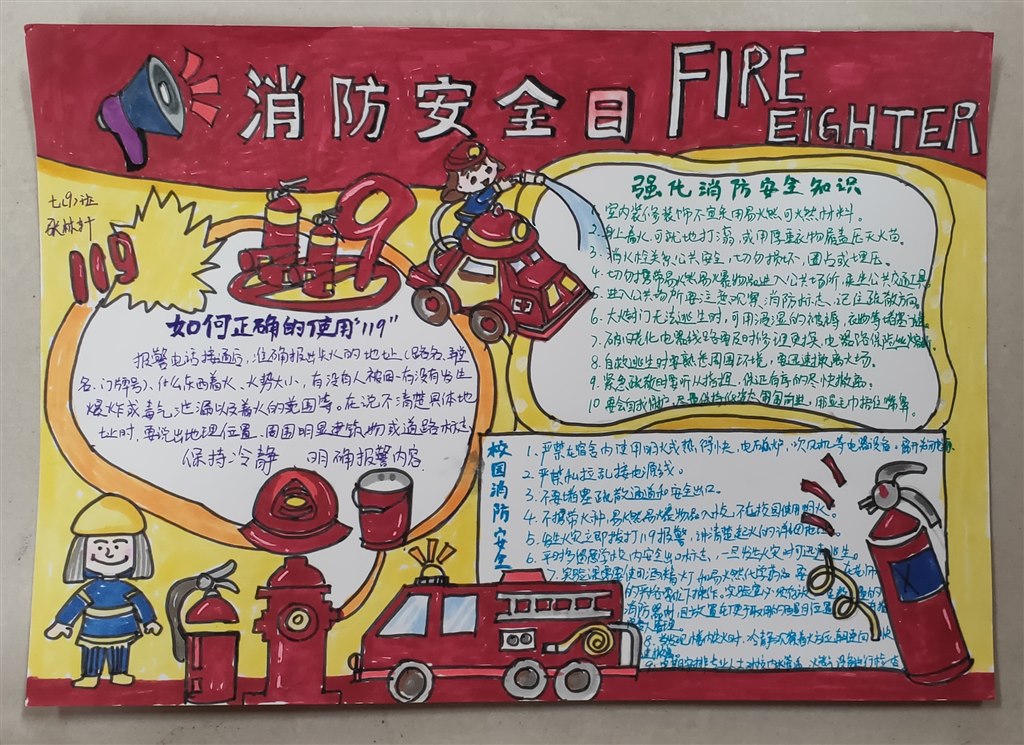 消防安全日
FIRE
EIGHTER
七(9)班
119
119
如何正确的使用"119"
报警电话接通后,准确报出失火的地址(路名、
名、门牌号)、什么东西着火、火势大小,有没有人被困,有没有发生
爆炸或毒气泄漏以及着火的范围等。在说不清楚具体地
址时,要说出地理位置、周围明显建筑物或道路标志
保持冷静 明确报警内容
强化消防安全知识
1. 室内装修装饰不宜采用易燃可燃材料。
2. 身上着火,可就地打滚,或用厚重衣物覆盖压灭火苗。
3. 消火栓关系公共安全,切勿损坏、圈占或埋压。
4. 切勿携带易燃易爆物品进入公共场所、乘坐公共交通工具
5. 进入公共场所要注意观察消防标志,记住疏散方向。
6. 大火封门无法逃生时,可用浸湿的被褥、衣物等堵塞门缝
7. 电器线路要及时修理更换,电器路保险
8. 自救逃生时要熟悉周围环境,要迅速撤离火场。
9. 紧急疏散时要听从指挥,保证有序的尽快撤离。
10
校园消防安全
1. 严禁在宿舍内使用明火或热得快、电磁炉、吹风机等电器设备。
2. 严禁私拉乱接电源线。
3. 不要堵塞疏散通道和安全出口。
4. 不携带火种、易燃易爆物品入校,不在校园使用明火。
5. 发生火灾立即拨打119报警,讲清楚起火的详细地
6. 平时多留意学校内安全出口标志,一旦发生火灾时可迅 逃生。
7. 实验课需要使用酒精灯和易燃化学药品
的 下操作,实验室
消防器材,且放置在便于取用的明显位置
管理
8. 发现火情 时,冷静观察着火方位
9. 定期安排专业人士对校内